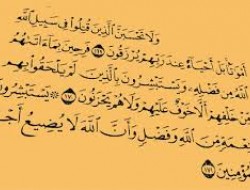 وَلَا تَحْسَبَنَّ الَّذِينَ قُتِلُوا فِي سَبِيلِ اللَّهِ
أَمْوَاتًا بَلْ أَحْيَاءٌ عِندَ رَبِّهِمْ يُرْزَقُونَ ١٦٩ فَرِحِينَ بِمَا ءَاتَىٰهُمُ
اللَّهُ مِن فَضْلِهِ وَيَسْتَبْشِرُونَ بِالَّذِينَ لَمْ يَلْحَقُوا بِهِم
مِّنْ خَلْفِهِمْ أَلَّا خَوْفٌ عَلَيْهِمْ وَلَا هُمْ يَحْزَنُونَ ١٧٠ ۞ يَسْتَبْشِرُونَ
مِّنَ اللَّهِ وَفَضْلٍ وَأَنَّ اللَّهَ لَا يُضِيعُ
١٧١